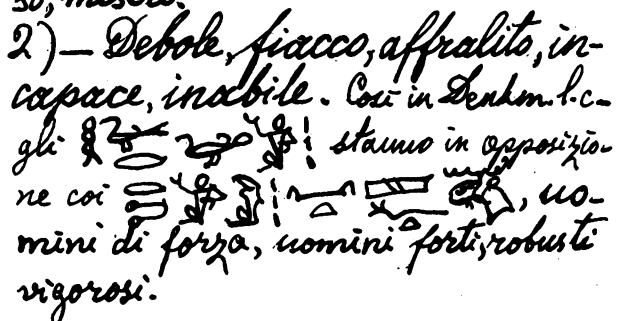 so, misero.
2) — Debole, fiacco, affralito, in-
capace, inabile. Così in Denkm. l. c.
gli stanno in opposizio-
ne coi , uo-
mini di forza, uomini forti, robusti
vigorosi.